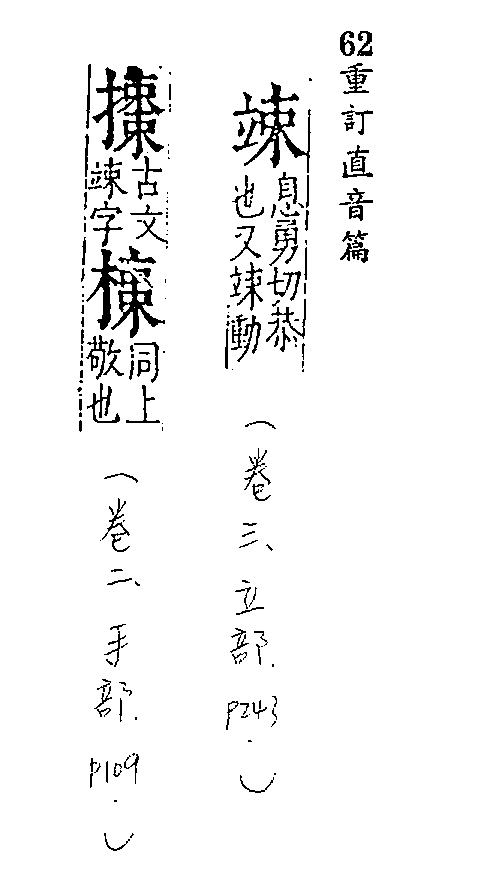 62重訂直音篇
竦
息勇切恭
也又竦動
(卷三、立部.P243.)
古文
竦字
同上
敬也
(卷二、手部.P109.)